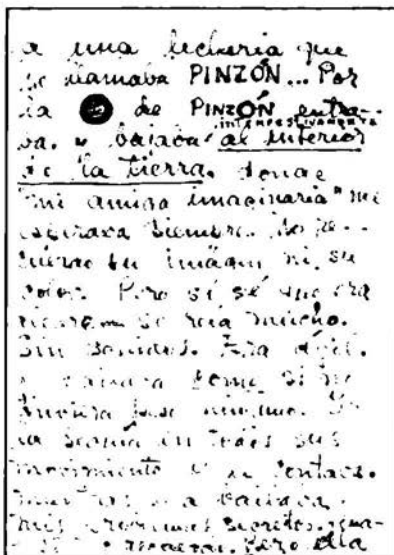 a una lechería que
se llamaba PINZÓN... Por
la O de PINZÓN entra-
ba y bajaba INTEMPESTIVAMENTE al interior
de la tierra, donde
"mi amiga imaginaria" me
esperaba siempre. No re-
cuerdo su imágen ni su
color. Pero sí sé que era
alegre — se reía mucho.
Sin sonidos. Era ágil.
y bailaba como si no
tuviera peso ninguno. Yo
la seguía en todos sus
movimientos y le contaba,
mientras ella bailaba,
mis problemas secretos.
Pero ella